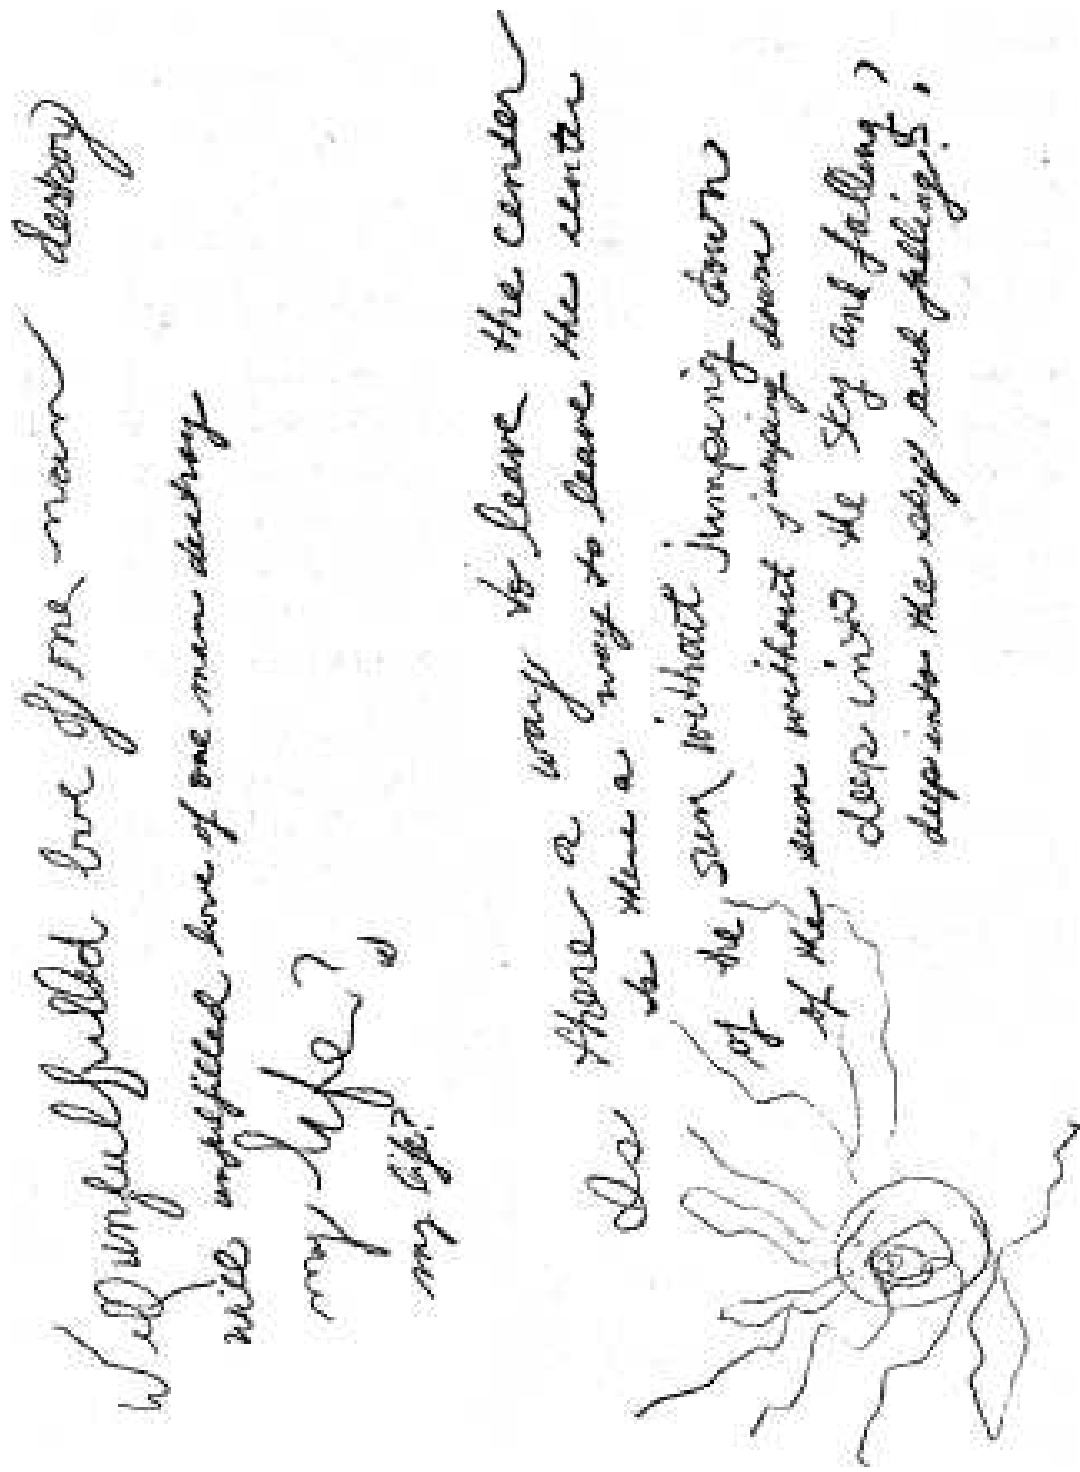 Will unfulfilled love of one man destroy
will unfulfilled love of one man destroy
my life?
my life?
Is there a way to leave the center
is there a way to leave the center
of the sun without jumping down
of the sun without jumping down
deep into the sky and falling?
deep into the sky and falling?